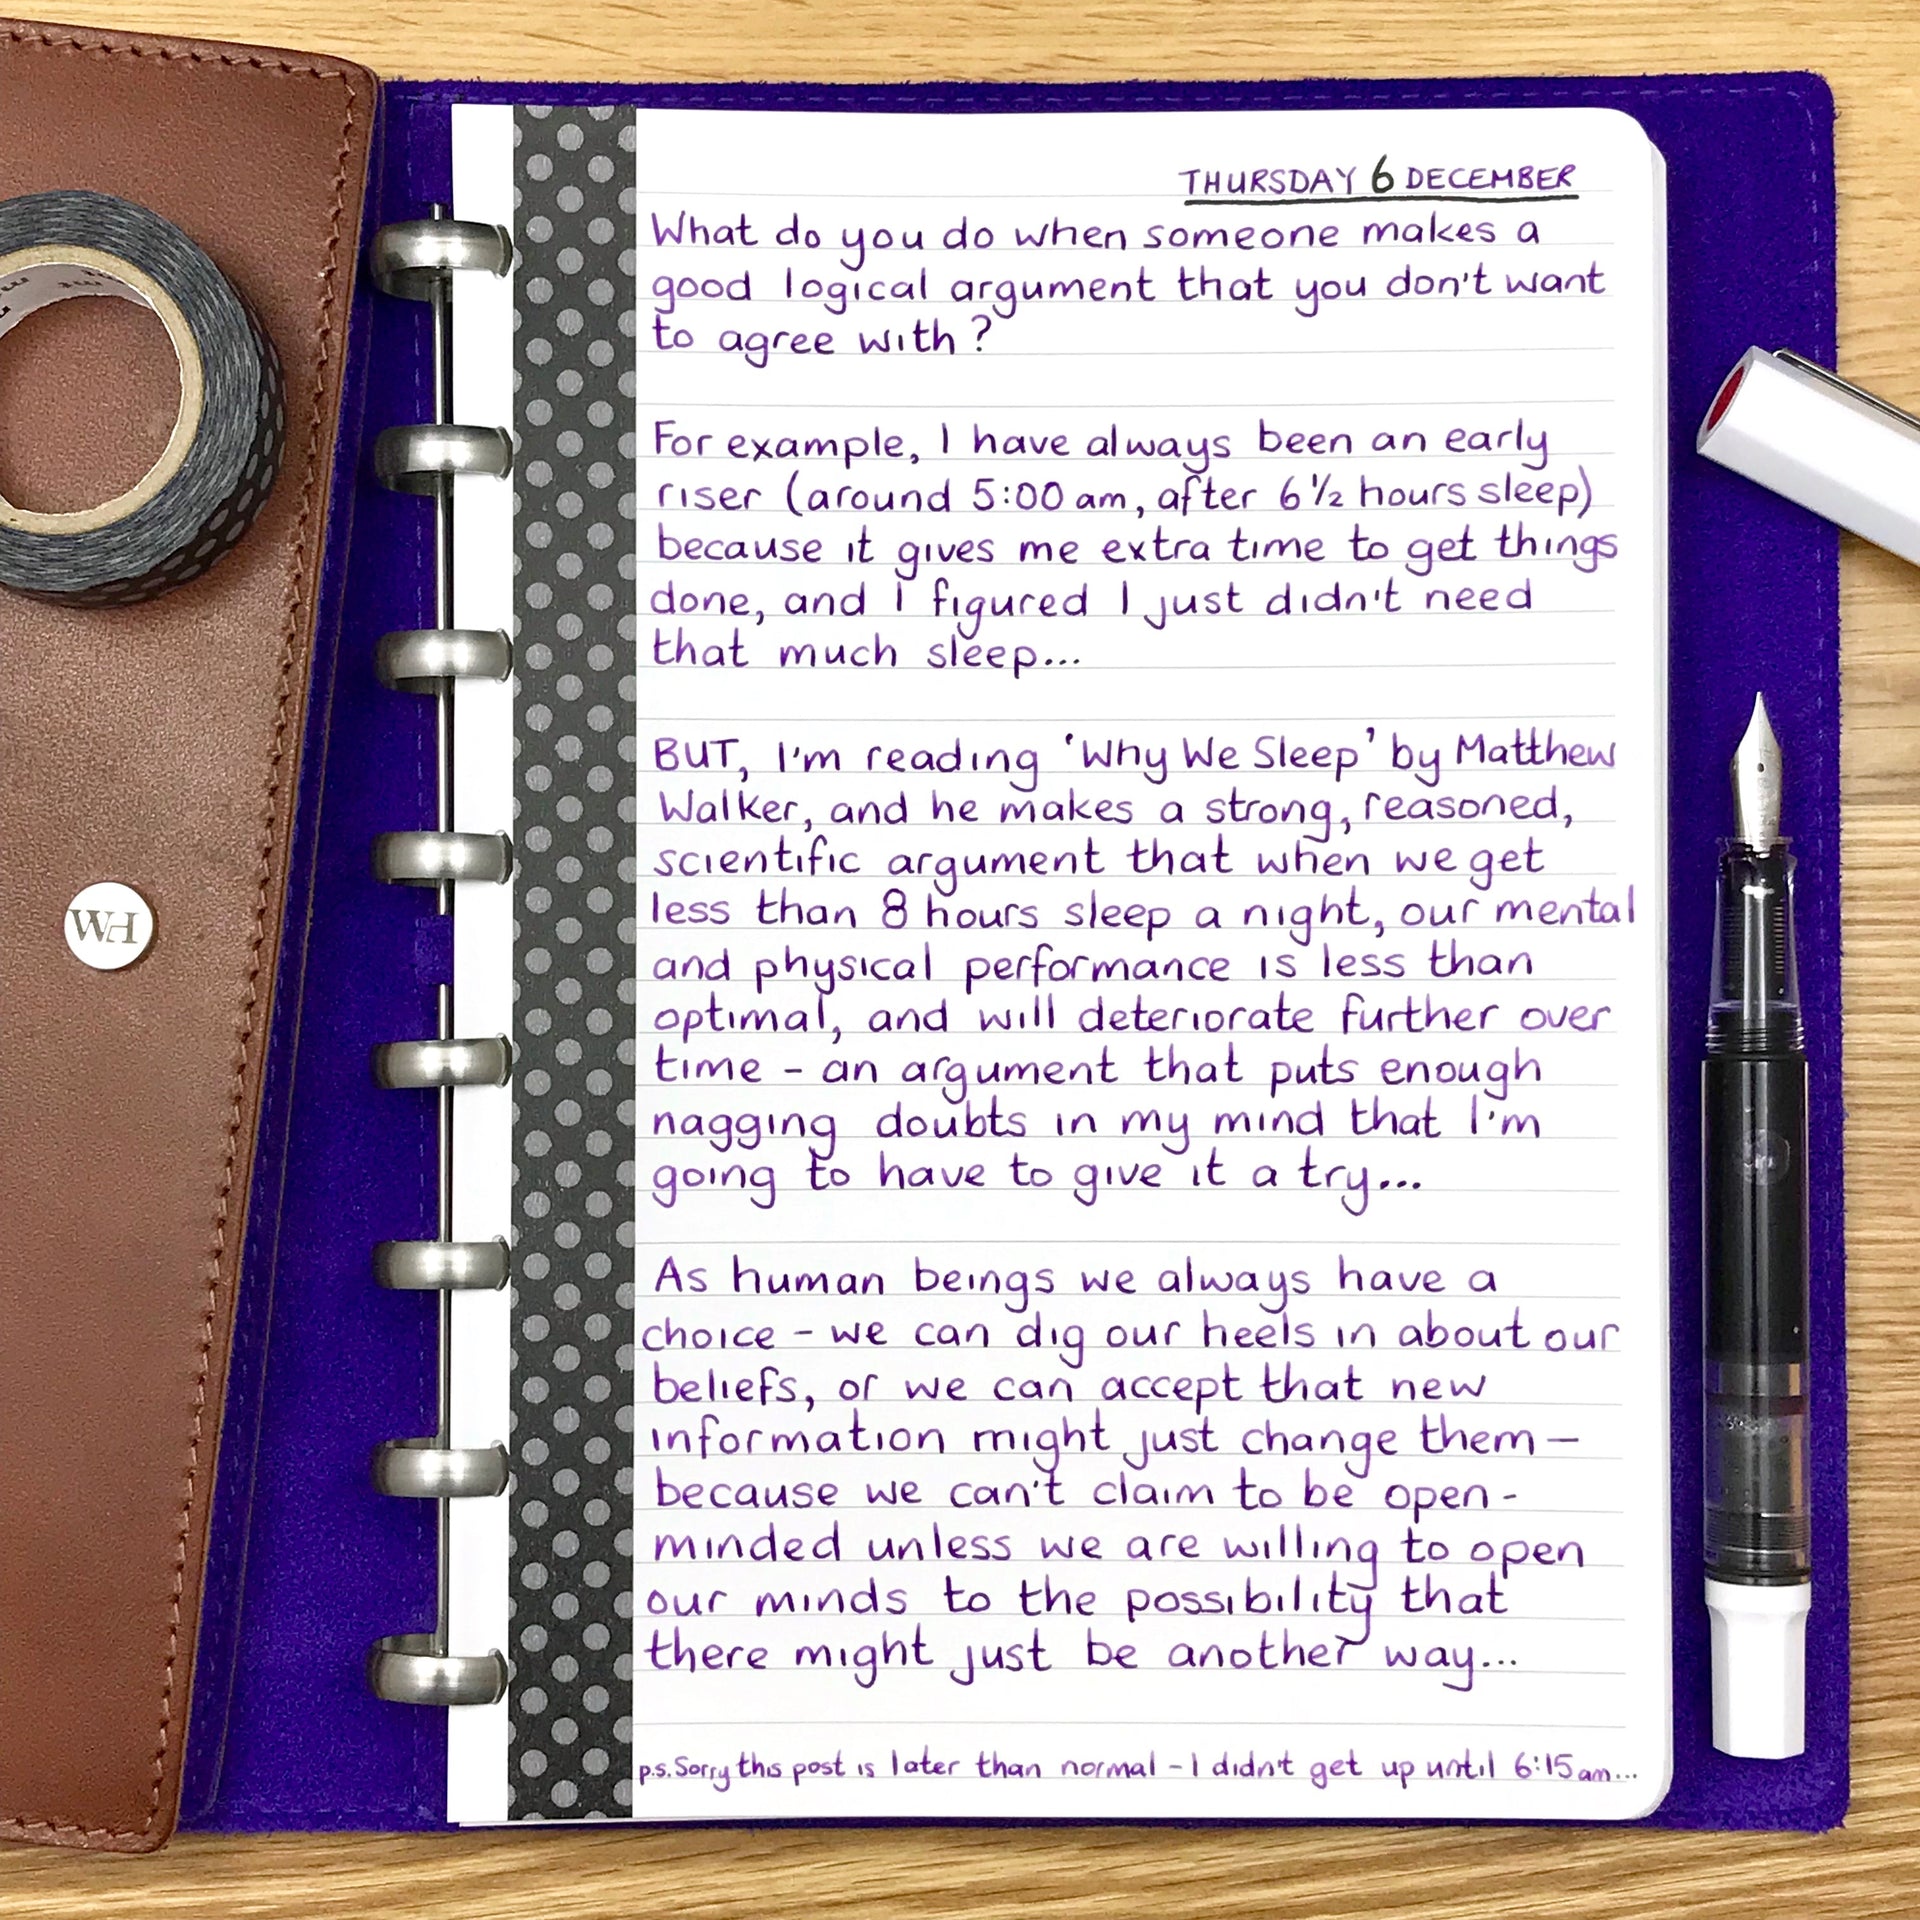 THURSDAY 6 DECEMBER
What do you do when someone makes a
good logical argument that you don't want
to agree with?
For example, I have always been an early
riser (around 5:00 am, after 6 ½ hours sleep)
because it gives me extra time to get things
done, and I figured I just didn't need
that much sleep...
BUT, I'm reading 'Why We Sleep' by Matthew
Walker, and he makes a strong, reasoned,
scientific argument that when we get
less than 8 hours sleep a night, our mental
and physical performance is less than
optimal, and will deteriorate further over
time - an argument that puts enough
nagging doubts in my mind that I'm
going to have to give it a try...
As human beings we always have a
choice - we can dig our heels in about our
beliefs, or we can accept that new
information might just change them -
because we can't claim to be open-
minded unless we are willing to open
our minds to the possibility that
there might just be another way...
p.s. Sorry this post is later than normal - I didn't get up until 6:15am...
WH